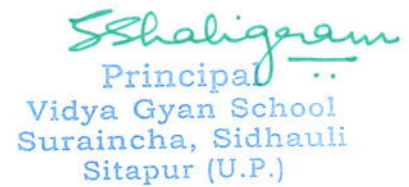 SShaligeram
Principal
Vidya Gyan School
Suraincha, Sidhauli
Sitapur (U.P.)